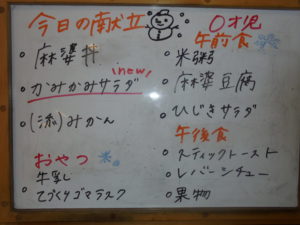 今日の献立
麻婆丼
new!
かみかみサラダ
(添)みかん
おやつ
牛乳
てづくりゴマラスク
0才児
午前食
米粥
麻婆豆腐
ひじきサラダ
午後食
スティックトースト
レバーシチュー
果物